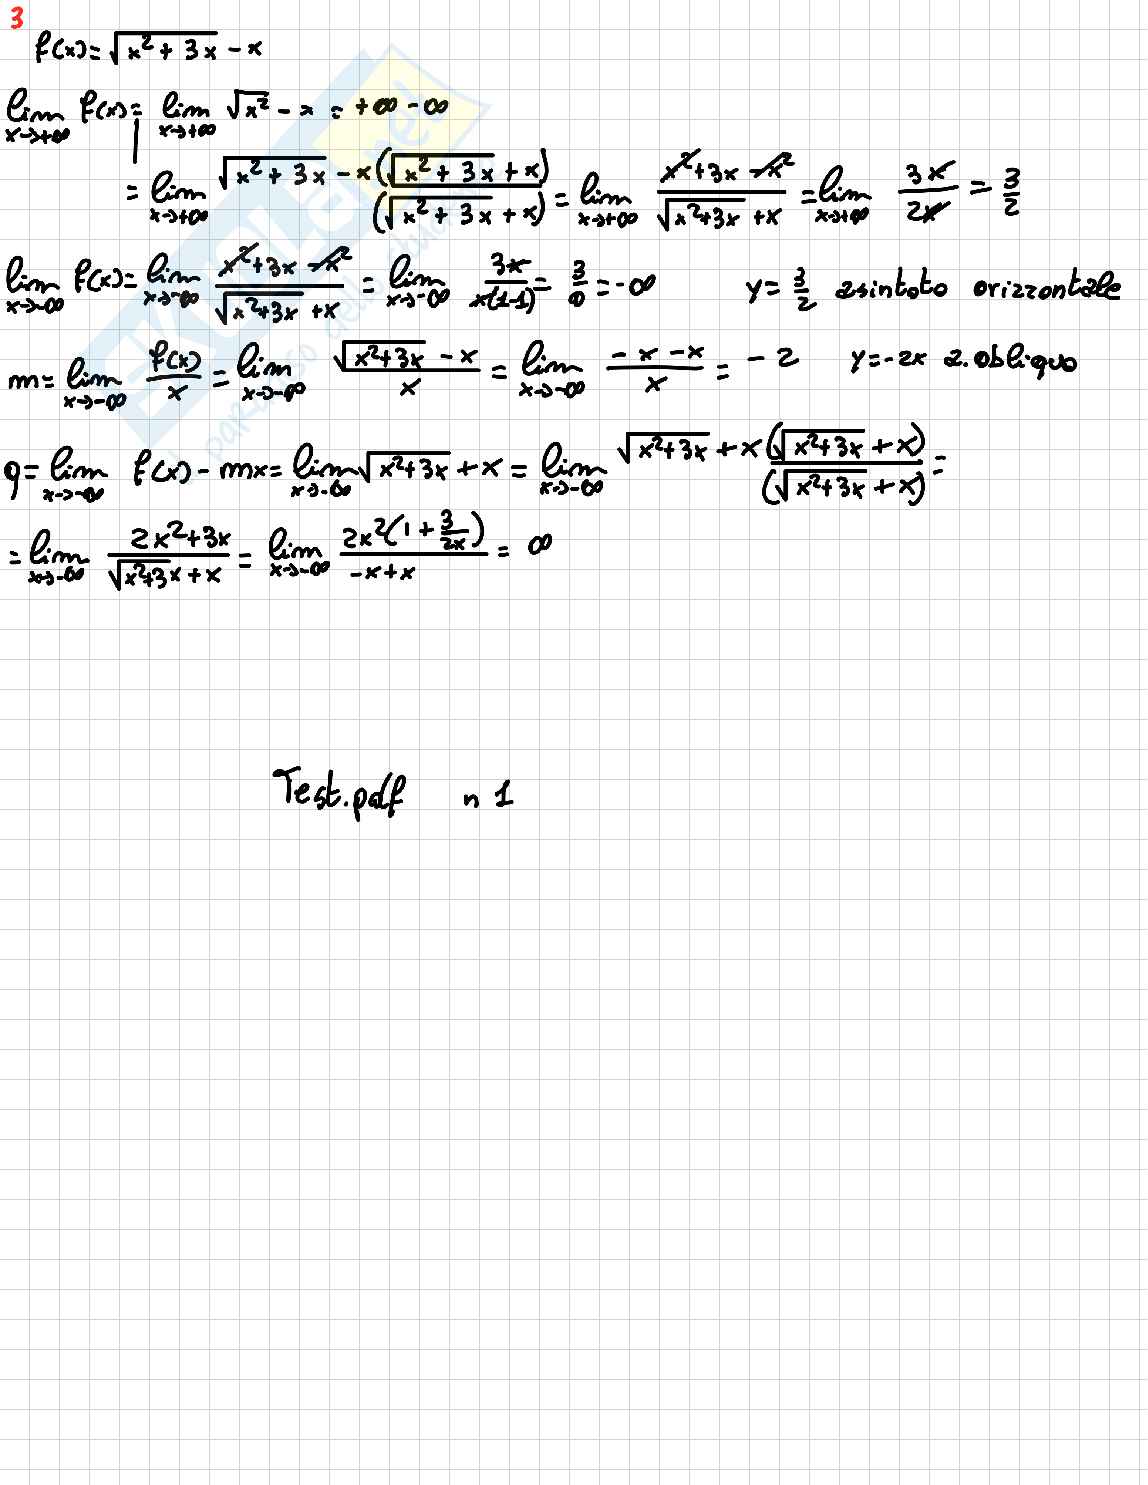 3
f(x)=√(x²+3x) -x
lim x→+∞ f(x)= lim x→+∞ √x² - x = +∞ -∞
= lim x→+∞ √(x²+3x) -x (√(x²+3x) +x)/(√(x²+3x) +x) = lim x→+∞ (x²+3x -x²)/(√(x²+3x) +x) = lim x→+∞ 3x/2x = 3/2
lim x→-∞ f(x)= lim x→-∞ (x²+3x -x²)/(√(x²+3x) +x) = lim x→-∞ 3x/x(1-1) = 3/0 = -∞ y= 3/2 asintoto orizzontale
m= lim x→-∞ f(x)/x = lim x→-∞ (√(x²+3x) -x)/x = lim x→-∞ (-x -x)/x = -2 y=-2x a.obliquo
q= lim x→-∞ f(x) - mx= lim x→-∞ √(x²+3x) +x = lim x→-∞ √(x²+3x) +x (√(x²+3x) +x)/(√(x²+3x) +x) =
= lim x→-∞ (2x²+3x)/(√(x²+3x) +x) = lim x→-∞ 2x²(1+ 3/2x)/(-x+x) = ∞
Test.pdf n 1